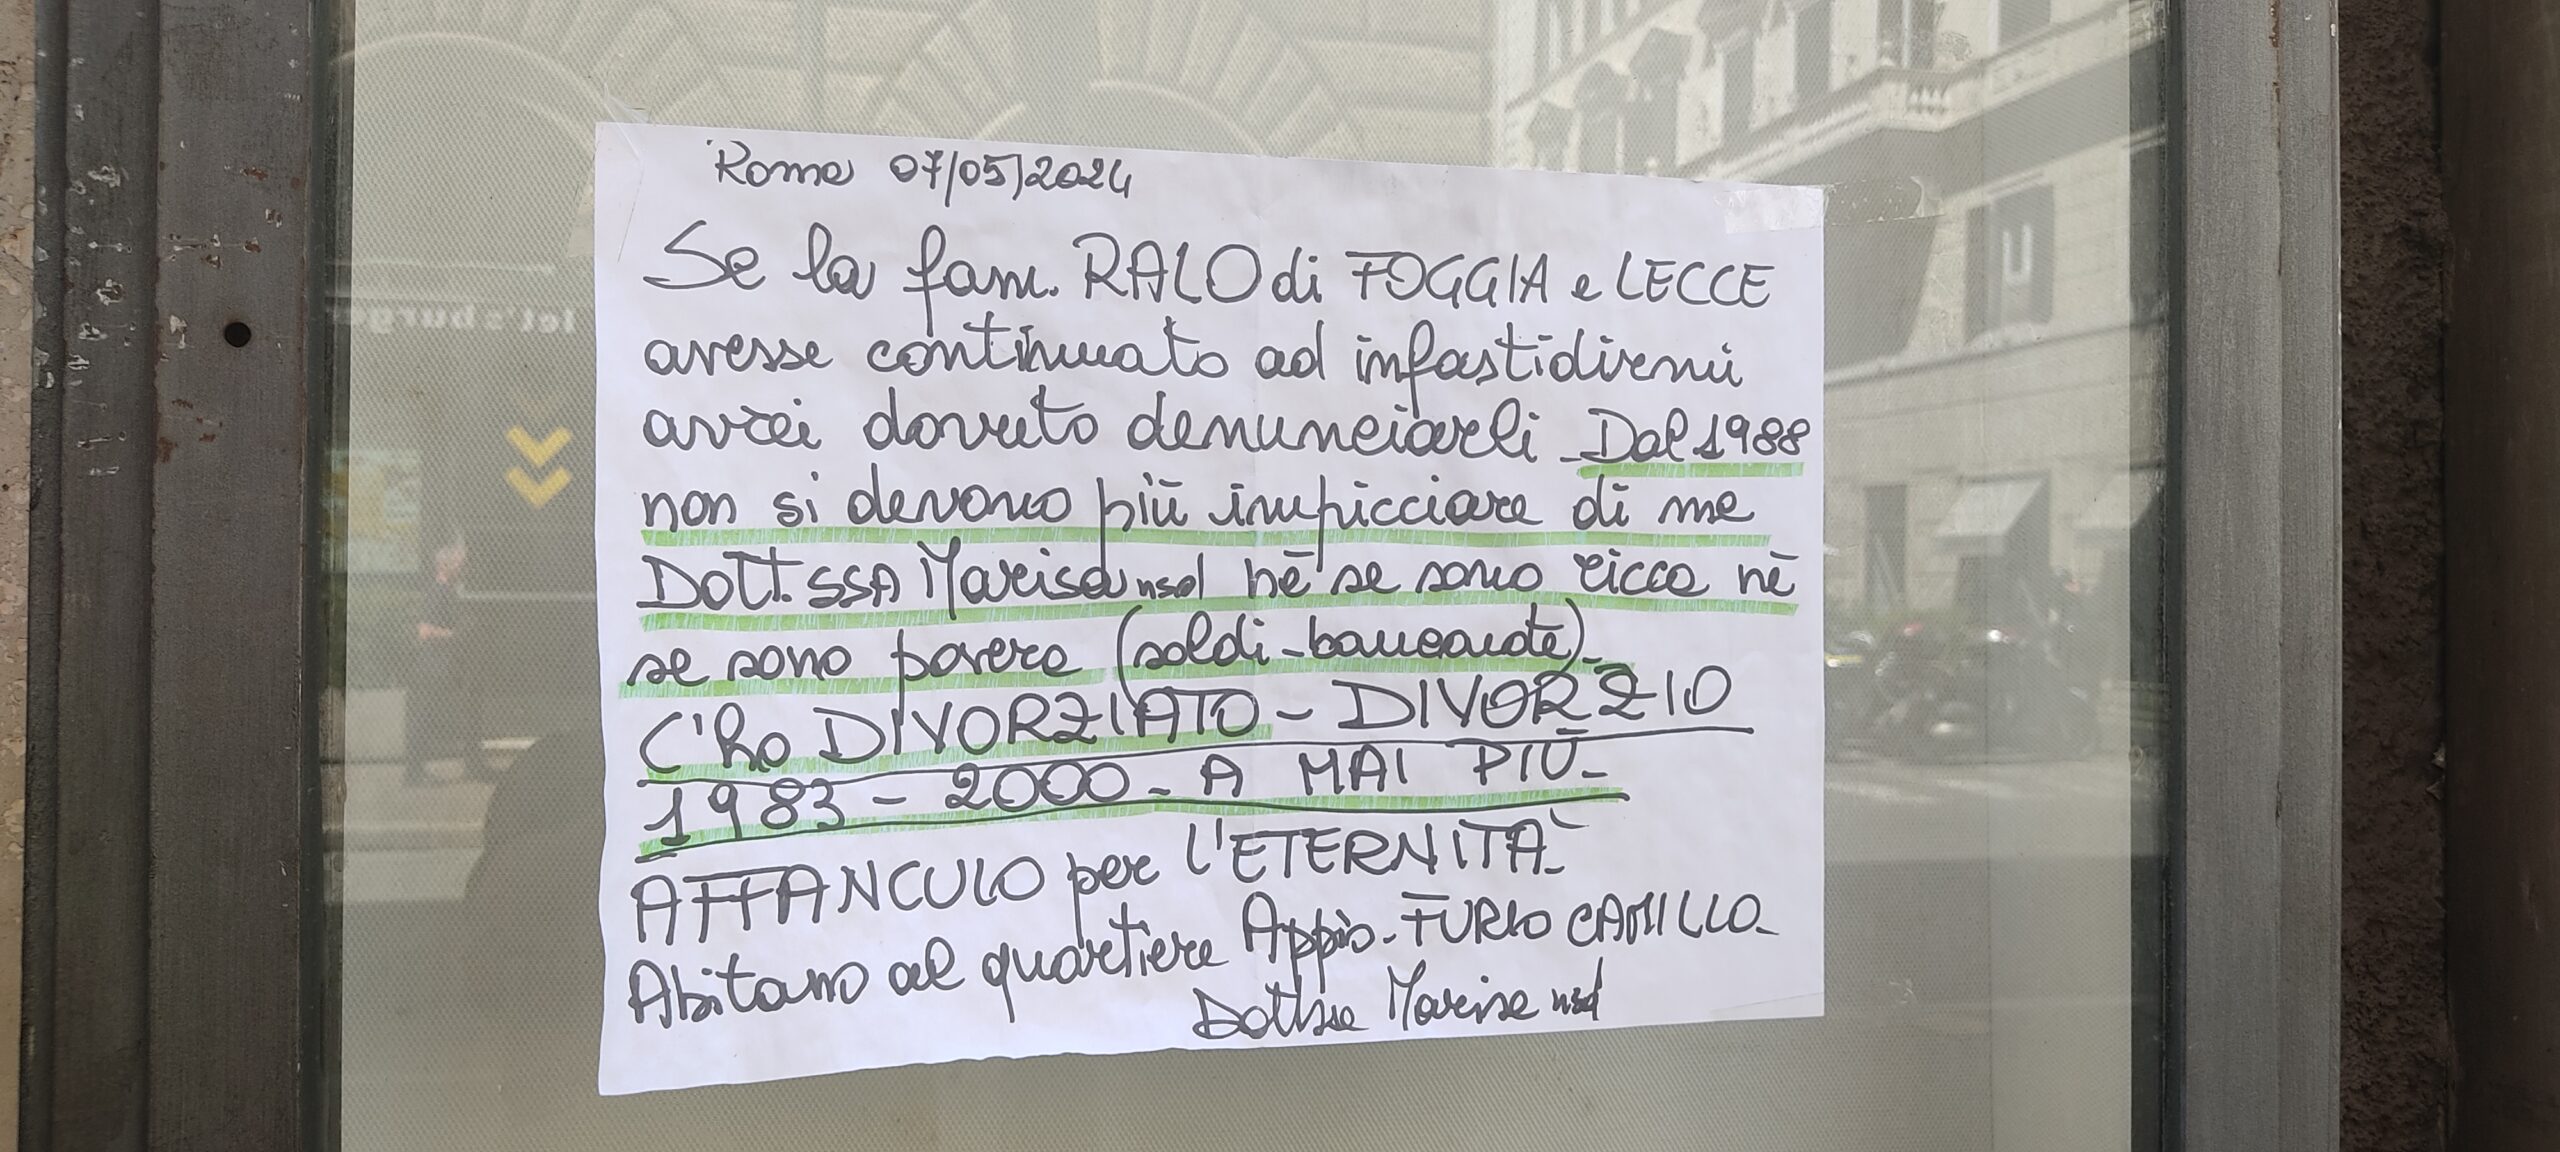 Roma 07/05/2024
Se la fam. RALO di FOGGIA e LECCE
avesse continuato ad infastidirmi
avrei dovuto denunciarli - Dal 1988
non si devono più impicciare di me
DOTT.SSA Marisa nsd nè se sono ricca nè
se sono povera (soldi - banconote) -
C'ho DIVORZIATO - DIVORZIO
1983 - 2000 - A MAI PIÙ -
AFFANCULO per L'ETERNITÀ -
Abitano al quartiere Appio - FURIO CAMILLO -
Dott.ssa Marisa nsd
let's burger